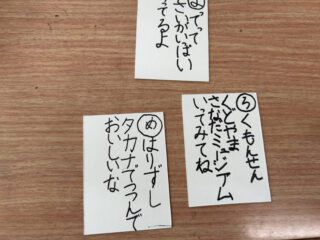 ろくもんせん
くどやま
さなだミュージアム
いってみてね
めはりずし
タカナでつつんで
おいしいな
でって
てるよ